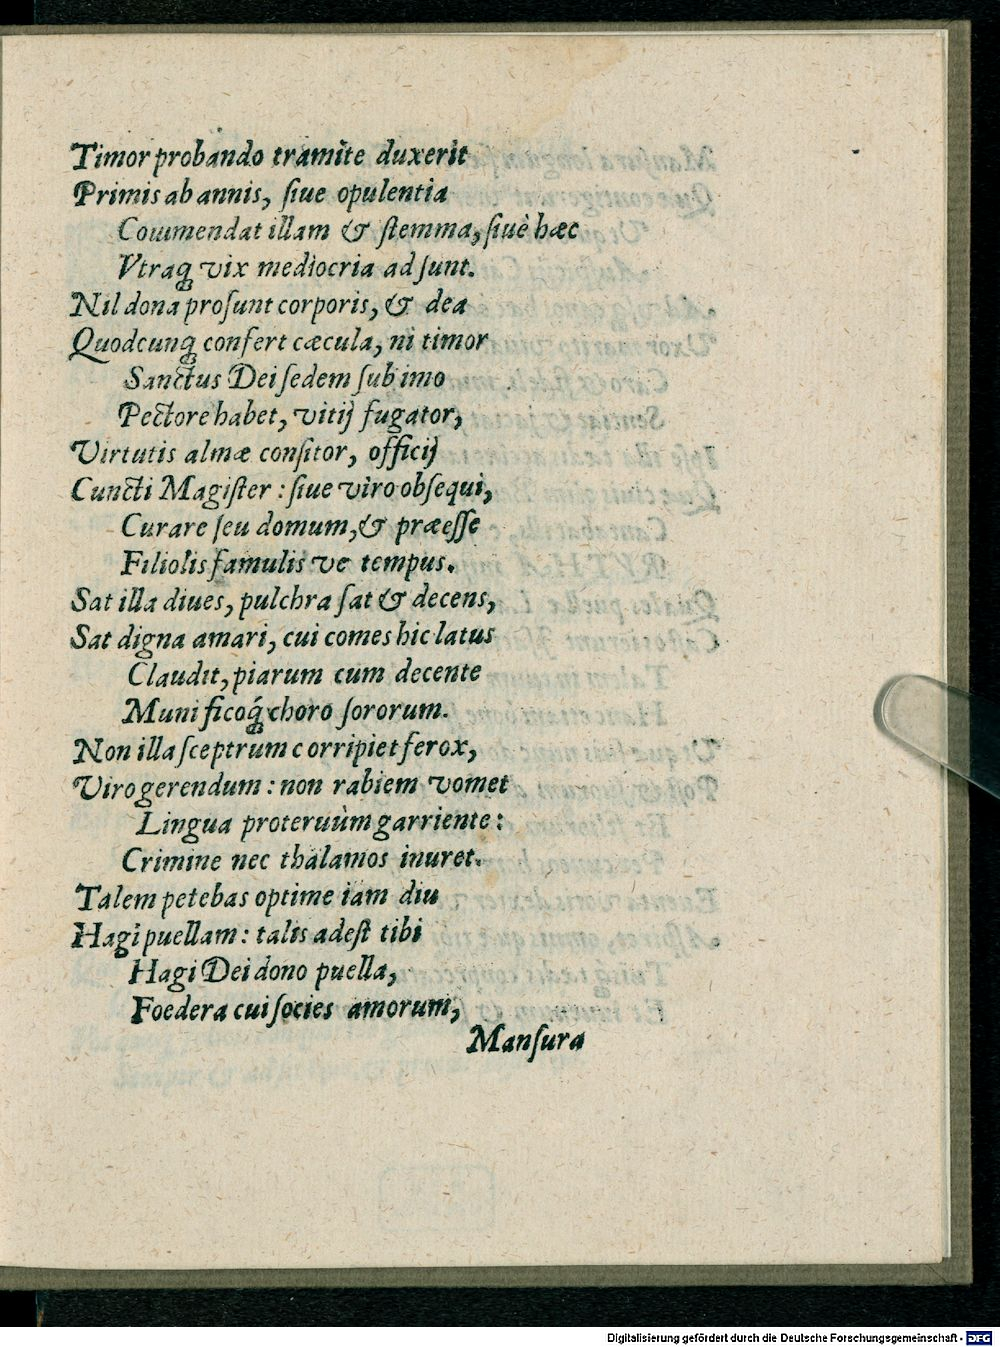 Timor probando tramite duxerit
Primis ab annis, ſiue opulentia
Commendat illam & ſtemma, ſiuè hæc
Vtraq́; vix mediocria adſunt.
Nil dona proſunt corporis, & dea
Quodcunq́; confert cæcula, ni timor
Sanctus Dei ſedem ſub imo
Pectore habet, vitij fugator,
Virtutis almæ conſitor, officij
Cuncti Magiſter: ſiue viro obſequi,
Curare ſeu domum, & præeſſe
Filiolis famulis ve tempus.
Sat illa diues, pulchra ſat & decens,
Sat digna amari, cui comes hic latus
Claudit, piarum cum decente
Munificoq́; choro ſororum.
Non illa ſceptrum corripiet ferox,
Viro gerendum: non rabiem vomet
Lingua proteruùm garriente:
Crimine nec thalamos inuret.
Talem petebas optime iam diu
Hagi puellam: talis adeſt tibi
Hagi Dei dono puella,
Foedera cui ſocies amorum,
Manſura
Digitalisierung gefördert durch die Deutsche Forschungsgemeinschaft - DFG